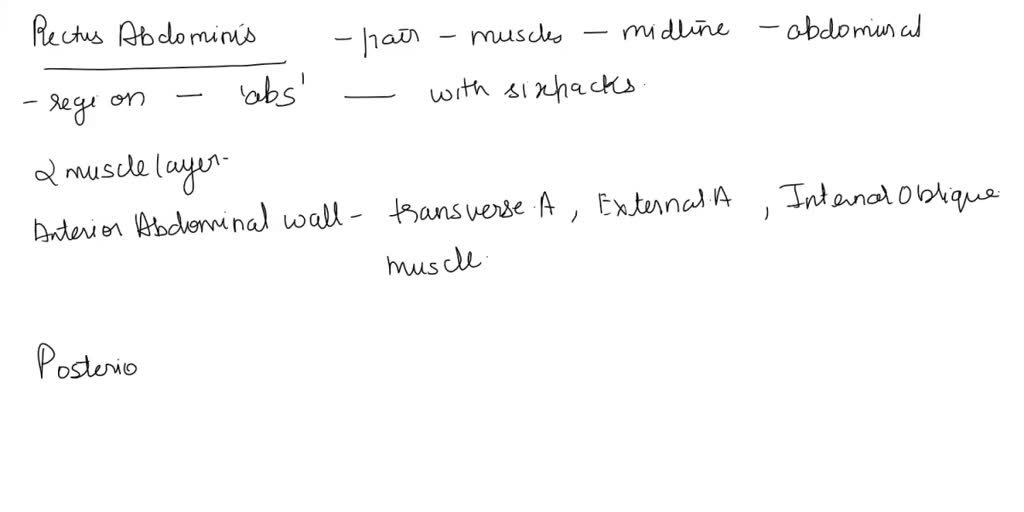 Rectus Abdominis - pair - muscles - midline - abdominal
- region - 'abs' — with sixpacks.
2 muscle layer-
Anterior Abdominal wall - transverse A, External A, Internal Oblique
muscle.
Posterio